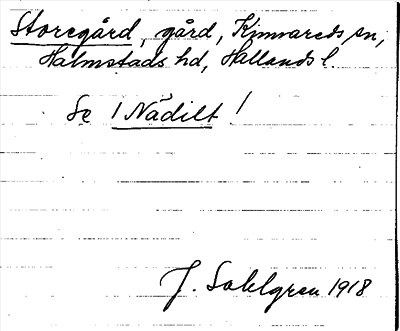 Storegård, gård, Kinnareds sn,
Halmstads hd, Hallands l.
Se 1 Nådilt!
J. Sahlgren 1918